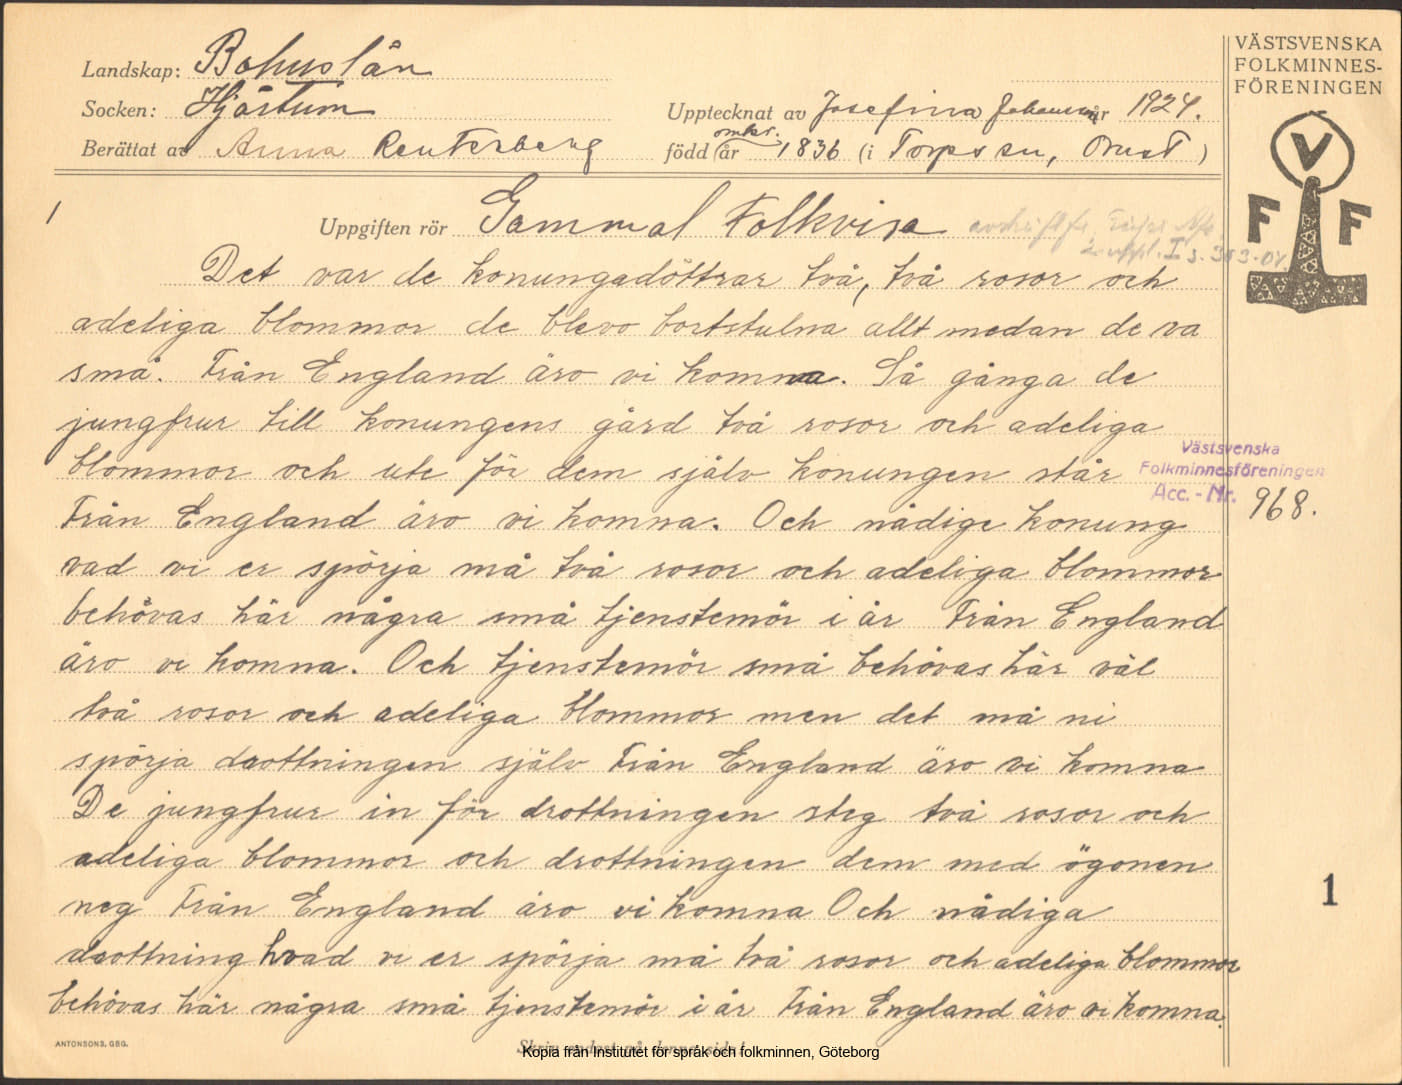 VÄSTSVENSKA
FOLKMINNES-
FÖRENINGEN
V
F F
Landskap: Bohuslän
Socken: Hjärtum
Upptecknat av Josefina Johansson år 1924.
Berättat av Anna Reuterberg
omkr.
född år 1836 (i Torps sn, Orust)
1
Uppgiften rör Gammal Folkvisa
I s. 303-04.
Det var de konungadöttrar två, två rosor och
adeliga blommor de blevo bortstulna allt medan de va
små. Från England äro vi komna. Så gånga de
jungfrur till konungens gård två rosor och adeliga
blommor och ute för dem själv konungen står
Från England äro vi komna. Och nådige konung
vad vi er spörja må två rosor och adeliga blommor
behövas här några små tjenstemör i år Från England
äro vi komna. Och tjenstemör små behövas här väl
två rosor och adeliga blommor men det må ni
spörja drottningen själv Från England äro vi komna
De jungfrur in för drottningen steg två rosor och
adeliga blommor och drottningen dem med ögonen
neg Från England äro vi komna Och nådiga
drottning hvad vi er spörja må två rosor och adeliga blommor
behövas här några små tjenstemör i år Från England äro vi komna.
Västsvenska
Folkminnesföreningen
Acc. - Nr. 968.
1
ANTONSONS, GBG.
Skriv endast på denna sida!
Kopia från Institutet för språk och folkminnen, Göteborg